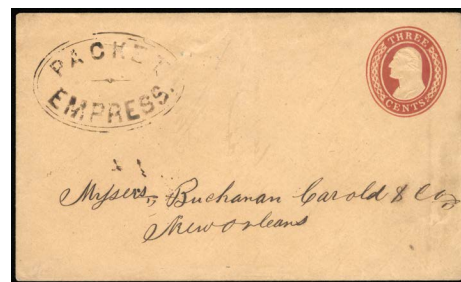 PACKET
EMPRESS.
THREE
CENTS.
Messrs, Buchanan Carold & Co,
New Orleans